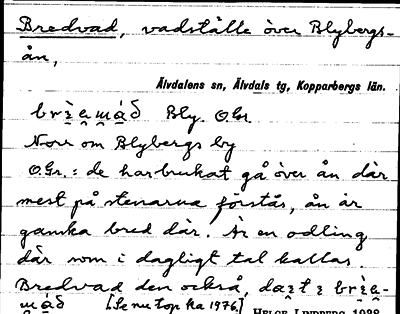 Bredvad, vadställe över Blybergs-
ån,
Älvdalens sn, Älvdals tg, Kopparbergs län.
Bly. O.Gr.
Norr om Blybergs by
O.Gr.: de har brukat gå över ån där
mest på stenarna förstås, ån är
ganska bred där. Är en odling
där som i dagligt tal kallas
Bredvad den också,
[Se nu top. ka 1976.] HELGE LINDBERG 1938